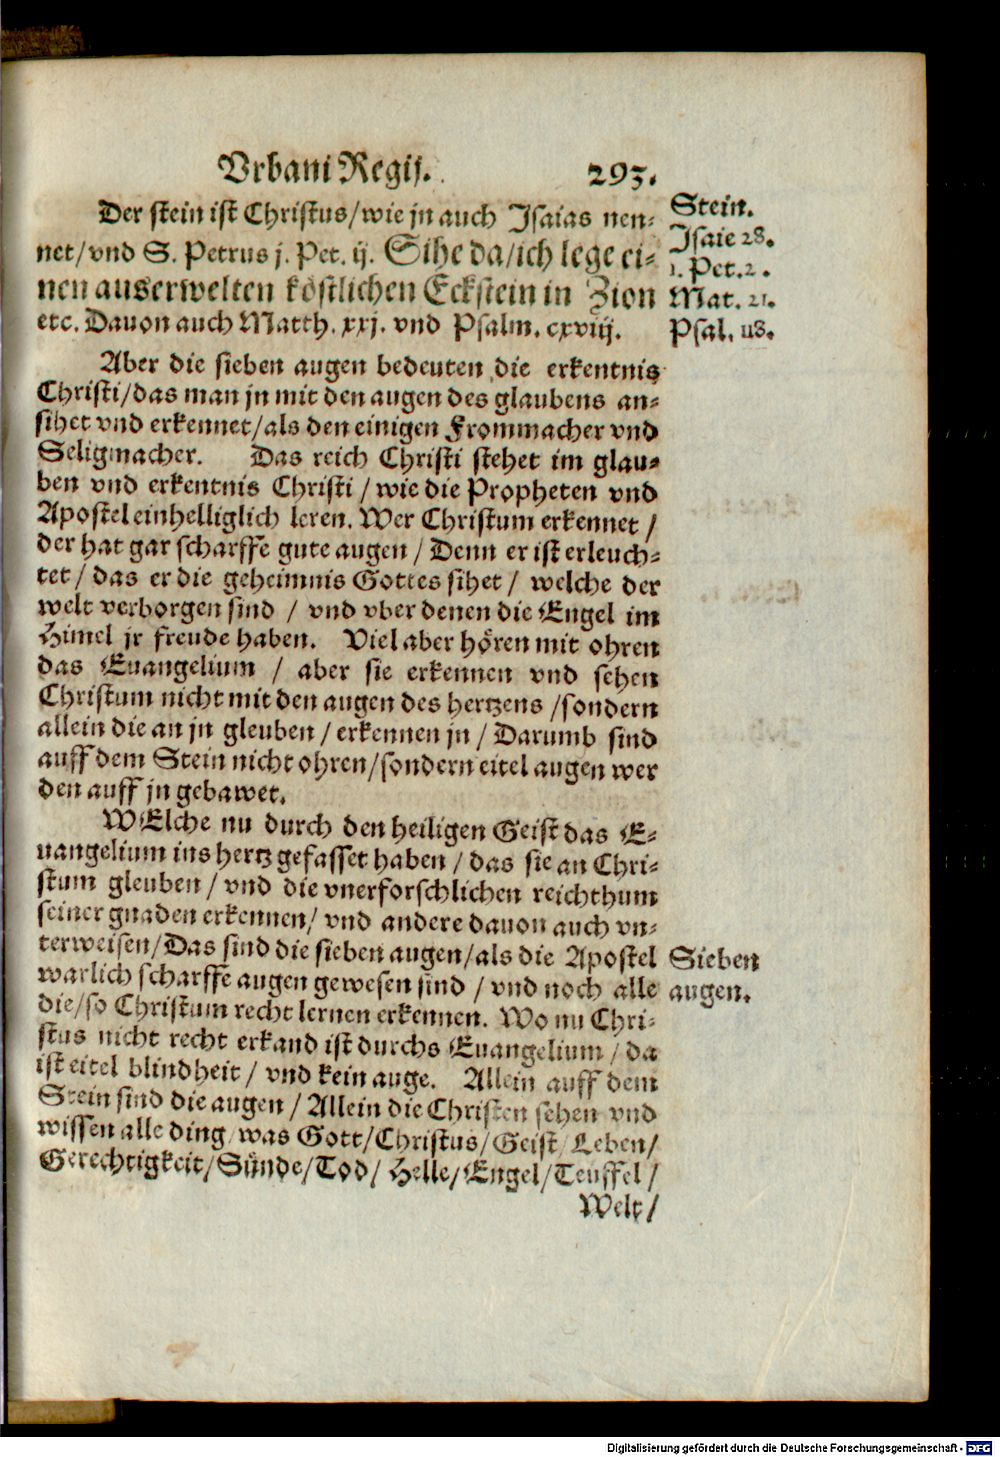 Vrbani Regij. 293.
Der stein ist Christus/wie jn auch Jsaias nen-
net/vnd S. Petrus j. Pet. ij. Sihe da/ich lege ei-
nen auserwelten köstlichen Eckstein in Zion
etc. Dauon auch Matth. xxj. vnd Psalm. cxviij.
Stein.
Jsaie 28.
1. Pet. 2.
Mat. 21.
Psal. 118.
Aber die sieben augen bedeuten die erkentnis
Christi/das man jn mit den augen des glaubens an-
sihet vnd erkennet/als den einigen Frommacher vnd
Seligmacher. Das reich Christi stehet im glau-
ben vnd erkentnis Christi/wie die Propheten vnd
Apostel einhelliglich leren. Wer Christum erkennet/
der hat gar scharffe gute augen/Denn er ist erleuch-
tet/das er die geheimnis Gottes sihet/welche der
welt verborgen sind/vnd vber denen die Engel im
Himel jr freude haben. Viel aber hören mit ohren
das Euangelium/aber sie erkennen vnd sehen
Christum nicht mit den augen des hertzens/sondern
allein die an jn gleuben/erkennen jn/Darumb sind
auff dem Stein nicht ohren/sondern eitel augen wer
den auff jn gebawet.
WElche nu durch den heiligen Geist das E-
uangelium ins hertz gefasset haben/das sie an Chri-
stum gleuben/vnd die vnerforschlichen reichthum
seiner gnaden erkennen/vnd andere dauon auch vn-
terweisen/Das sind die sieben augen/als die Apostel
warlich scharffe augen gewesen sind/vnd noch alle
die/so Christum recht lernen erkennen. Wo nu Chri-
stus nicht recht erkand ist durchs Euangelium/da
ist eitel blindheit/vnd kein auge. Allein auff dem
Stein sind die augen/Allein die Christen sehen vnd
wissen alle ding/was Gott/Christus/Geist/Leben/
Gerechtigkeit/Sünde/Tod/Helle/Engel/Teuffel/
Welt/
Sieben
augen.
Digitalisierung gefördert durch die Deutsche Forschungsgemeinschaft - DFG